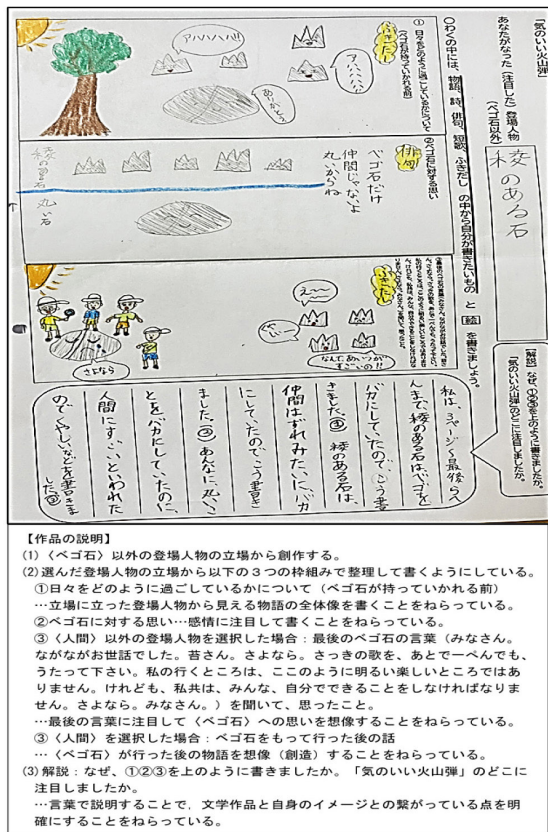 「気のいい火山弾」
あなたがなった（注目した）登場人物
（ベゴ石以外）
稜のある石
○わくの中には、物語、詩、俳句、短歌、ふきだし の中から自分が書きたいもの と 絵 を書きましょう。
ふきだし
①日々をどのように過ごしているかについて
（ベゴ石が持っていかれる前）
アハハハハ!!
アハハハハ!
ありがとう
俳句
②ベゴ石に対する思い
ベゴ石だけ
仲間じゃないよ
丸いからね
稜の石
丸い石
ふきだし
え〜〜
なんであいつが
すごいの!!
さよなら
【解説】なぜ、①②③を上のように書きましたか。
「気のいい火山弾」のどこに注目しましたか。
私は、3ページ〜最後らへ
んまで、稜のある石はベゴを
バカにしていたので、こう書
きました。① 稜のある石は、
仲間はずれみたいにバカ
にしていたのでこう書き
ました。② あんなに、丸いこ
とをバカにしていたのに、
人間にすごいといわれた
のでくやしいなどを書きま
した③
【作品の説明】
(1)〈ベゴ石〉以外の登場人物の立場から創作する。
(2) 選んだ登場人物の立場から以下の３つの枠組みで整理して書くようにしている。
①日々をどのように過ごしているかについて（ベゴ石が持っていかれる前）
…立場に立った登場人物から見える物語の全体像を書くことをねらっている。
②ベゴ石に対する思い…感情に注目して書くことをねらっている。
③〈人間〉以外の登場人物を選択した場合：最後のベゴ石の言葉（みなさん。
ながながお世話でした。苔さん。さよなら。さっきの歌を、あとで一ぺんでも、
うたって下さい。私の行くところは、ここのように明るい楽しいところではあ
りません。けれども、私共は、みんな、自分でできることをしなければなりま
せん。さよなら。みなさん。）を聞いて、思ったこと。
…最後の言葉に注目して〈ベゴ石〉への思いを想像することをねらっている。
③〈人間〉を選択した場合：ベゴ石をもって行った後の話
…〈ベゴ石〉が行った後の物語を想像（創造）することをねらっている。
(3) 解説：なぜ、①②③を上のように書きましたか。「気のいい火山弾」のどこに
注目しましたか。
…言葉で説明することで，文学作品と自身のイメージとの繋がっている点を明
確にすることをねらっている。